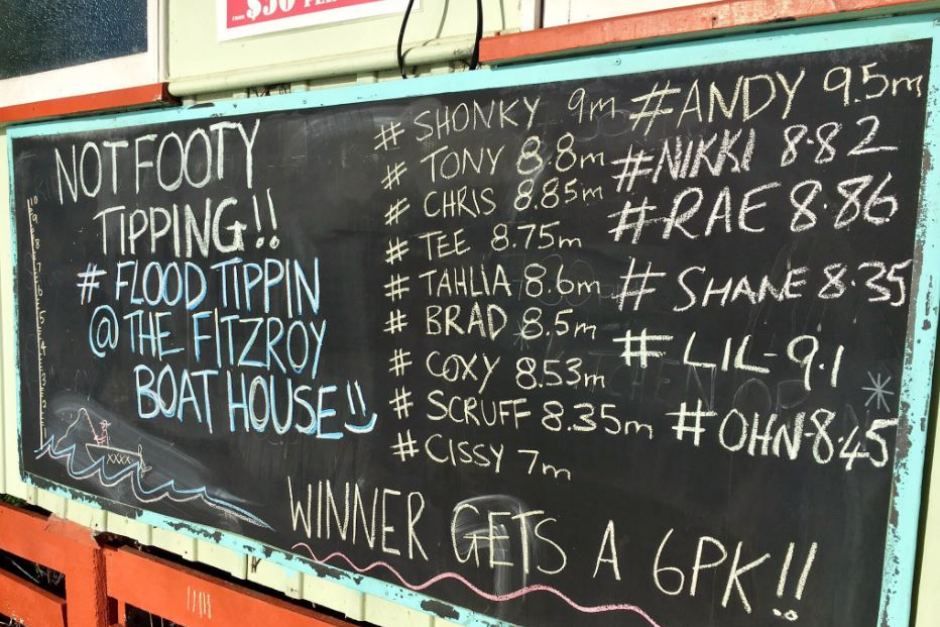 $50
NOT FOOTY
TIPPING!!
# FLOOD TIPPIN
@ THE FITZROY
BOAT HOUSE
# SHONKY 9m
# TONY 8.8m
# CHRIS 8.85m
# TEE 8.75m
# TAHLIA 8.6m
# BRAD 8.5m
# COXY 8.53m
# SCRUFF 8.35m
# CISSY 7m
#ANDY 9.5m
#NIKKI 8.82
#RAE 8.86
# SHANE 8.35
# LIL-9.1
#OHN-8.45
XXXX
WINNER GETS A 6PK!!